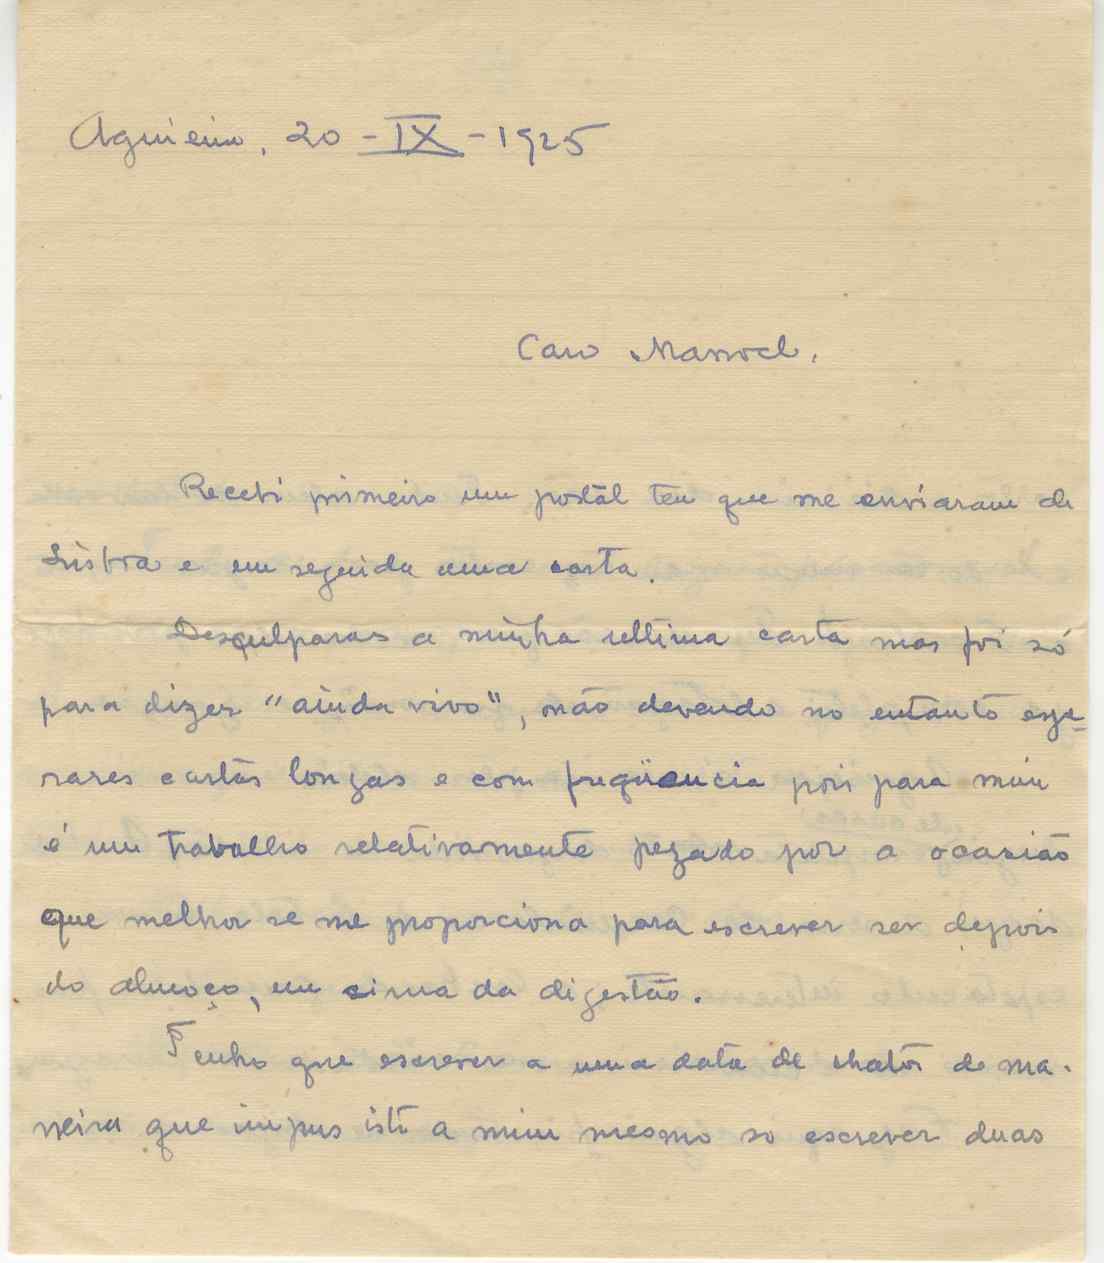 Aguieira, 20-IX-1925
Caro Manoel,
Recebi primeiro um postal teu que me enviaram de
Lisboa e em seguida uma carta.
Desculparas a minha ultima carta mas foi só
para dizer "ainda vivo", não devendo no entanto espe-
rares cartas longas e com freqüencia pois para mim
é um trabalho relativamente pezado por a ocazião
que melhor se me proporciona para escrever ser depois
do almoço, em cima da digestão.
Tenho que escrever a uma data de chatos de ma-
neira que impus isto a mim mesmo so escrever duas